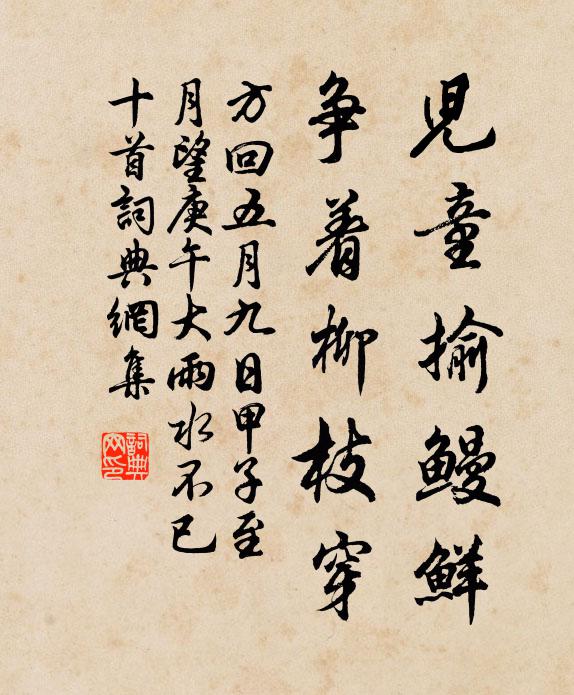 兒童揄鰻鮮
争着柳枝穿
方回五月九日甲子至
月望庚午大雨水不已
十首詞典網集
詞典
网印